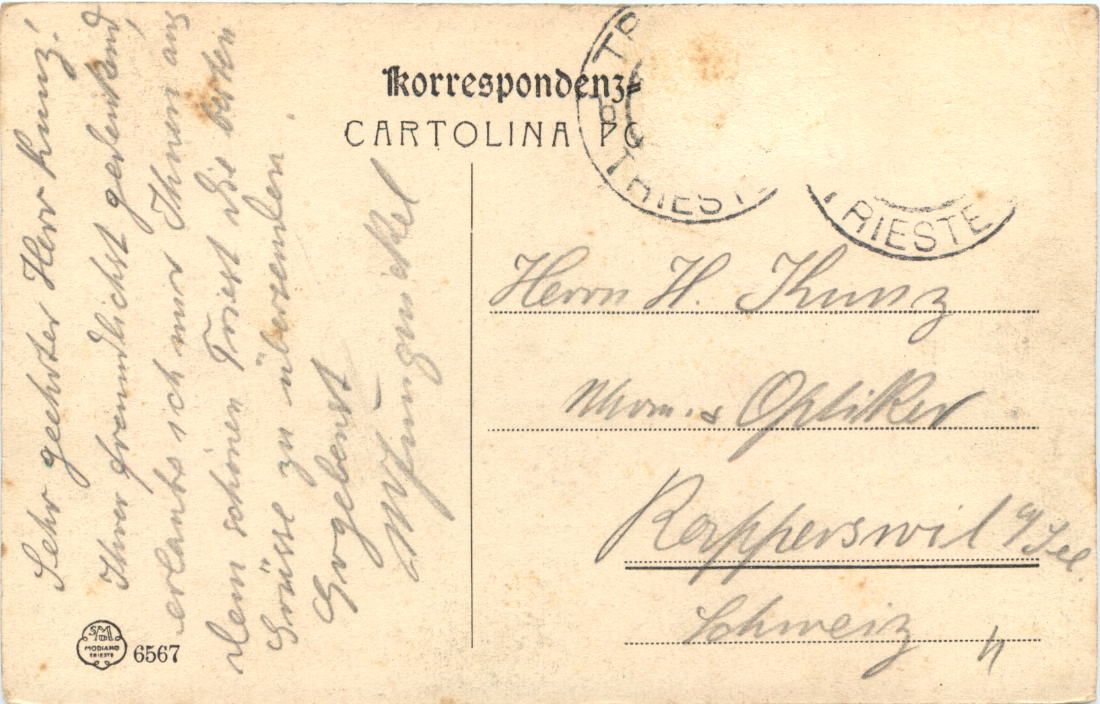 Korrespondenz-
CARTOLINA PO
TRIESTE
TRIESTE
Sehr geehrter Herr Kunz!
Ihrer freundlichst gedenkend,
erlaubt sich mir Ihnen aus
dem schönen Triest die besten
Grüsse zu übersenden.
Ergebenst
Herrn H. Kunz
Uhrm. & Optiker
Rapperswil a/See.
Schweiz
SMD
MODIANO
TRIESTE
6567